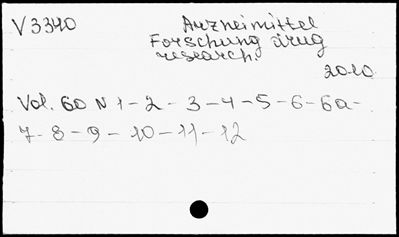 V3340 Arzneimittel
Forschung drug
research.
2010
Vol. 60 N 1-2-3-4-5-6-6a-
7-8-9-10-11-12